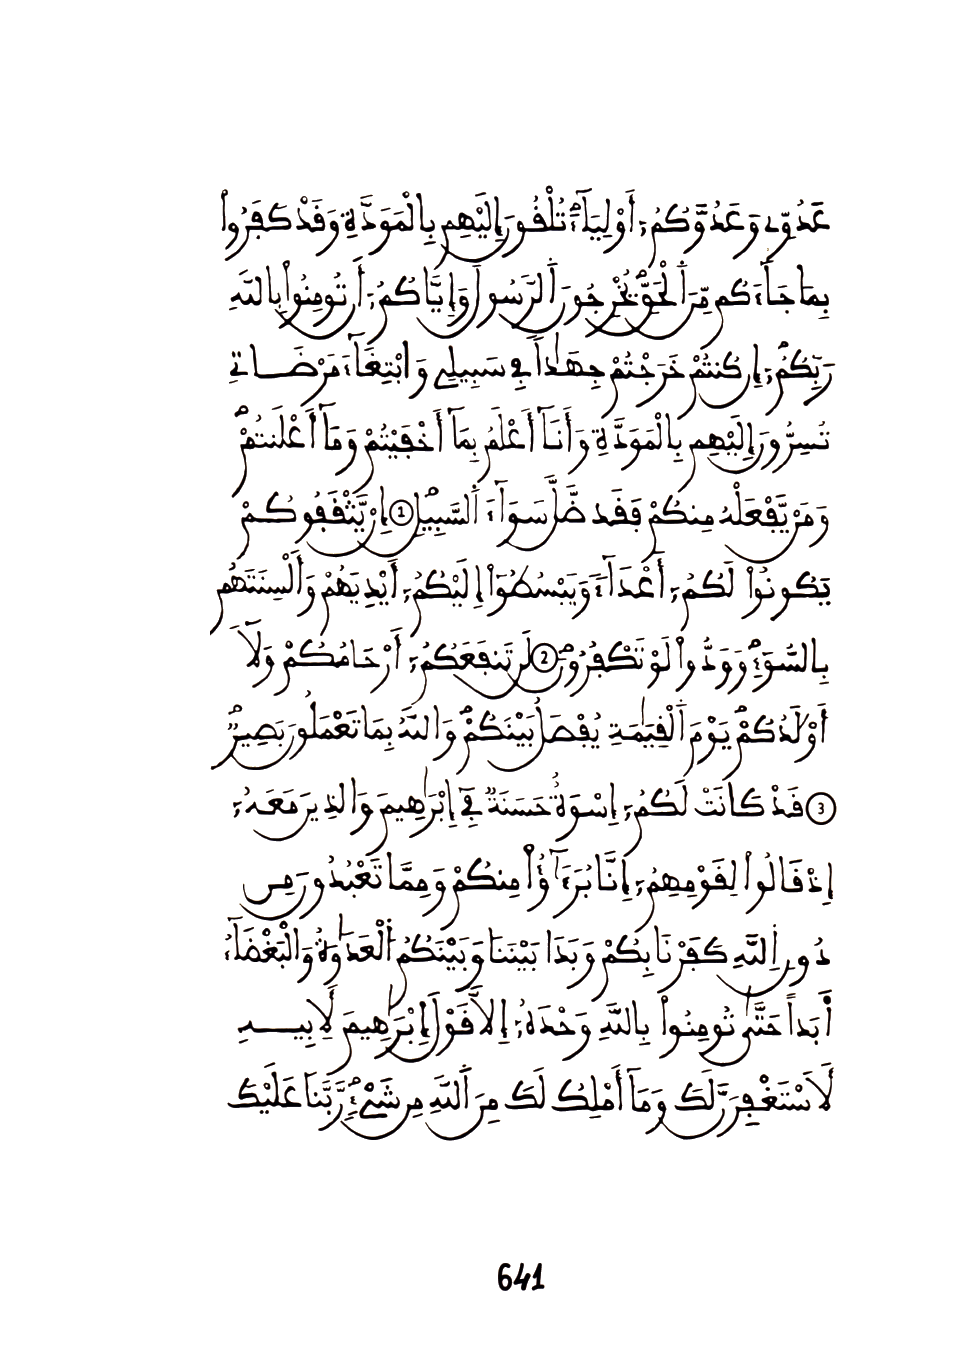 عَدُوِّے وَعَدُوَّكُمُۥٓ أَوْلِيَآءَ تُلْقُونَ إِلَيْهِم بِالْمَوَدَّةِ وَقَدْ كَفَرُواْ
بِمَا جَآءَكُم مِّنَ اَ۬لْحَقِّ يُخْرِجُونَ اَ۬لرَّسُولَ وَإِيَّاكُمُۥٓ أَن تُومِنُواْ بِاللَّهِ
رَبِّكُمُۥٓ إِن كُنتُمْ خَرَجْتُمْ جِهَٰداٗ فِے سَبِيلِے وَابْتِغَآءَ مَرْضَاتِے
تُسِرُّونَ إِلَيْهِم بِالْمَوَدَّةِ وَأَنَآ أَعْلَمُ بِمَآ أَخْفَيْتُمْ وَمَآ أَعْلَنتُمْ
وَمَنْ يَّفْعَلْهُ مِنكُمْ فَقَد ضَّلَّ سَوَآءَ اَ۬لسَّبِيلِ 1 إِنْ يَّثْقَفُوكُمْ
يَكُونُواْ لَكُمُۥٓ أَعْدَآءٗ وَيَبْسُطُوٓاْ إِلَيْكُمُۥٓ أَيْدِيَهُمْ وَأَلْسِنَتَهُم
بِالسُّوٓءِ وَوَدُّواْ لَوْ تَكْفُرُونَ 2 لَن تَنفَعَكُمُۥٓ أَرْحَامُكُمْ وَلَآ
أَوْلَٰدُكُمْ يَوْمَ اَ۬لْقِيَٰمَةِ يُفْصَلُ بَيْنَكُمْ وَاللَّهُ بِمَا تَعْمَلُونَ بَصِيرٞ
3 قَدْ كَانَتْ لَكُمُۥٓ إِسْوَةٌ حَسَنَةٞ فِےٓ إِبْرَٰهِيمَ وَالذِينَ مَعَهُۥٓ
إِذْ قَالُواْ لِقَوْمِهِمُۥٓ إِنَّا بُرَءَٰٓؤُاْ مِنكُمْ وَمِمَّا تَعْبُدُونَ مِن
دُونِ اِ۬للَّهِ كَفَرْنَا بِكُمْ وَبَدَا بَيْنَنَا وَبَيْنَكُمُ اُ۬لْعَدَٰوَةُ وَالْبَغْضَآءُ
أَبَداً حَتَّىٰ تُومِنُواْ بِاللَّهِ وَحْدَهُۥٓ إِلَّا قَوْلَ إِبْرَٰهِيمَ لِأَبِيهِ
لَأَسْتَغْفِرَنَّ لَكَ وَمَآ أَمْلِكُ لَكَ مِنَ اَ۬للَّهِ مِن شَےْءٖ رَّبَّنَا عَلَيْكَ
641